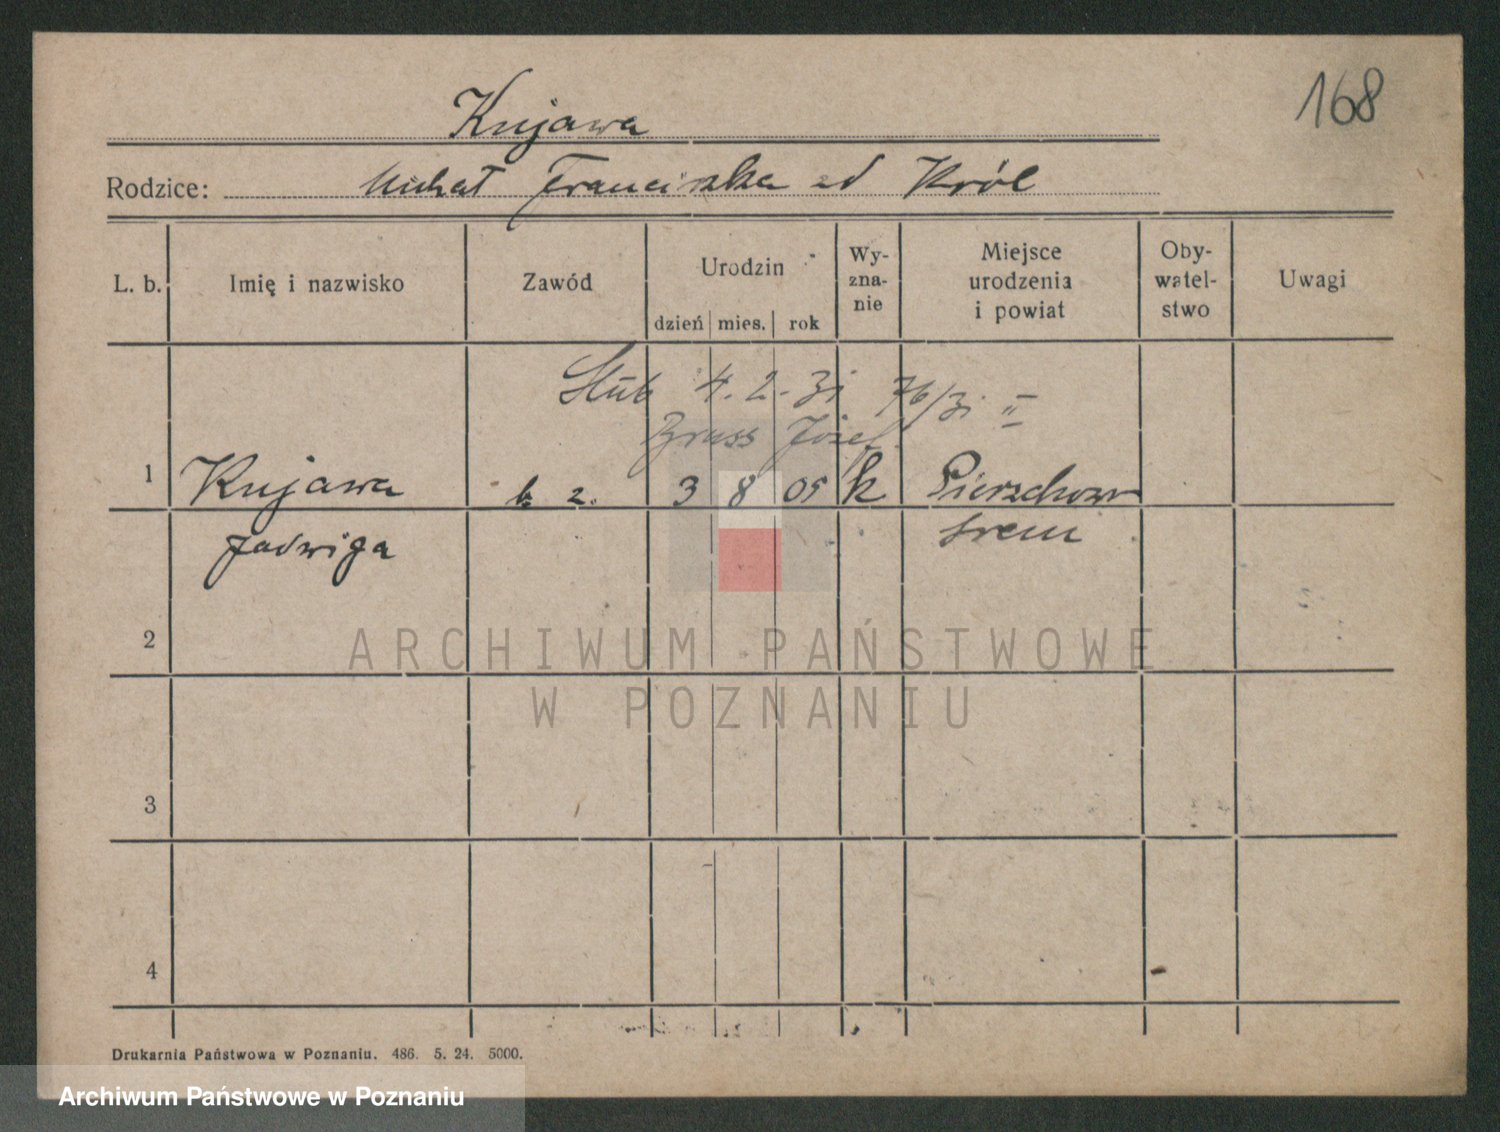 168
Kujawa
Rodzice: Michał Franciszka zd Król
L. b. Imię i nazwisko Zawód Urodzin dzień mies. rok Wy-zna-nie Miejsce urodzenia i powiat Oby-watel-stwo Uwagi
Ślub 4. 2. 31 76/31 II
Bruss Józef
1 Kujawa b. z. 3 8 05 k Pierzchow
Jadwiga Srem
2
3
4
ARCHIWUM PAŃSTWOWE
W POZNANIU
Drukarnia Państwowa w Poznaniu. 486. 5. 24. 5000.
Archiwum Państwowe w Poznaniu